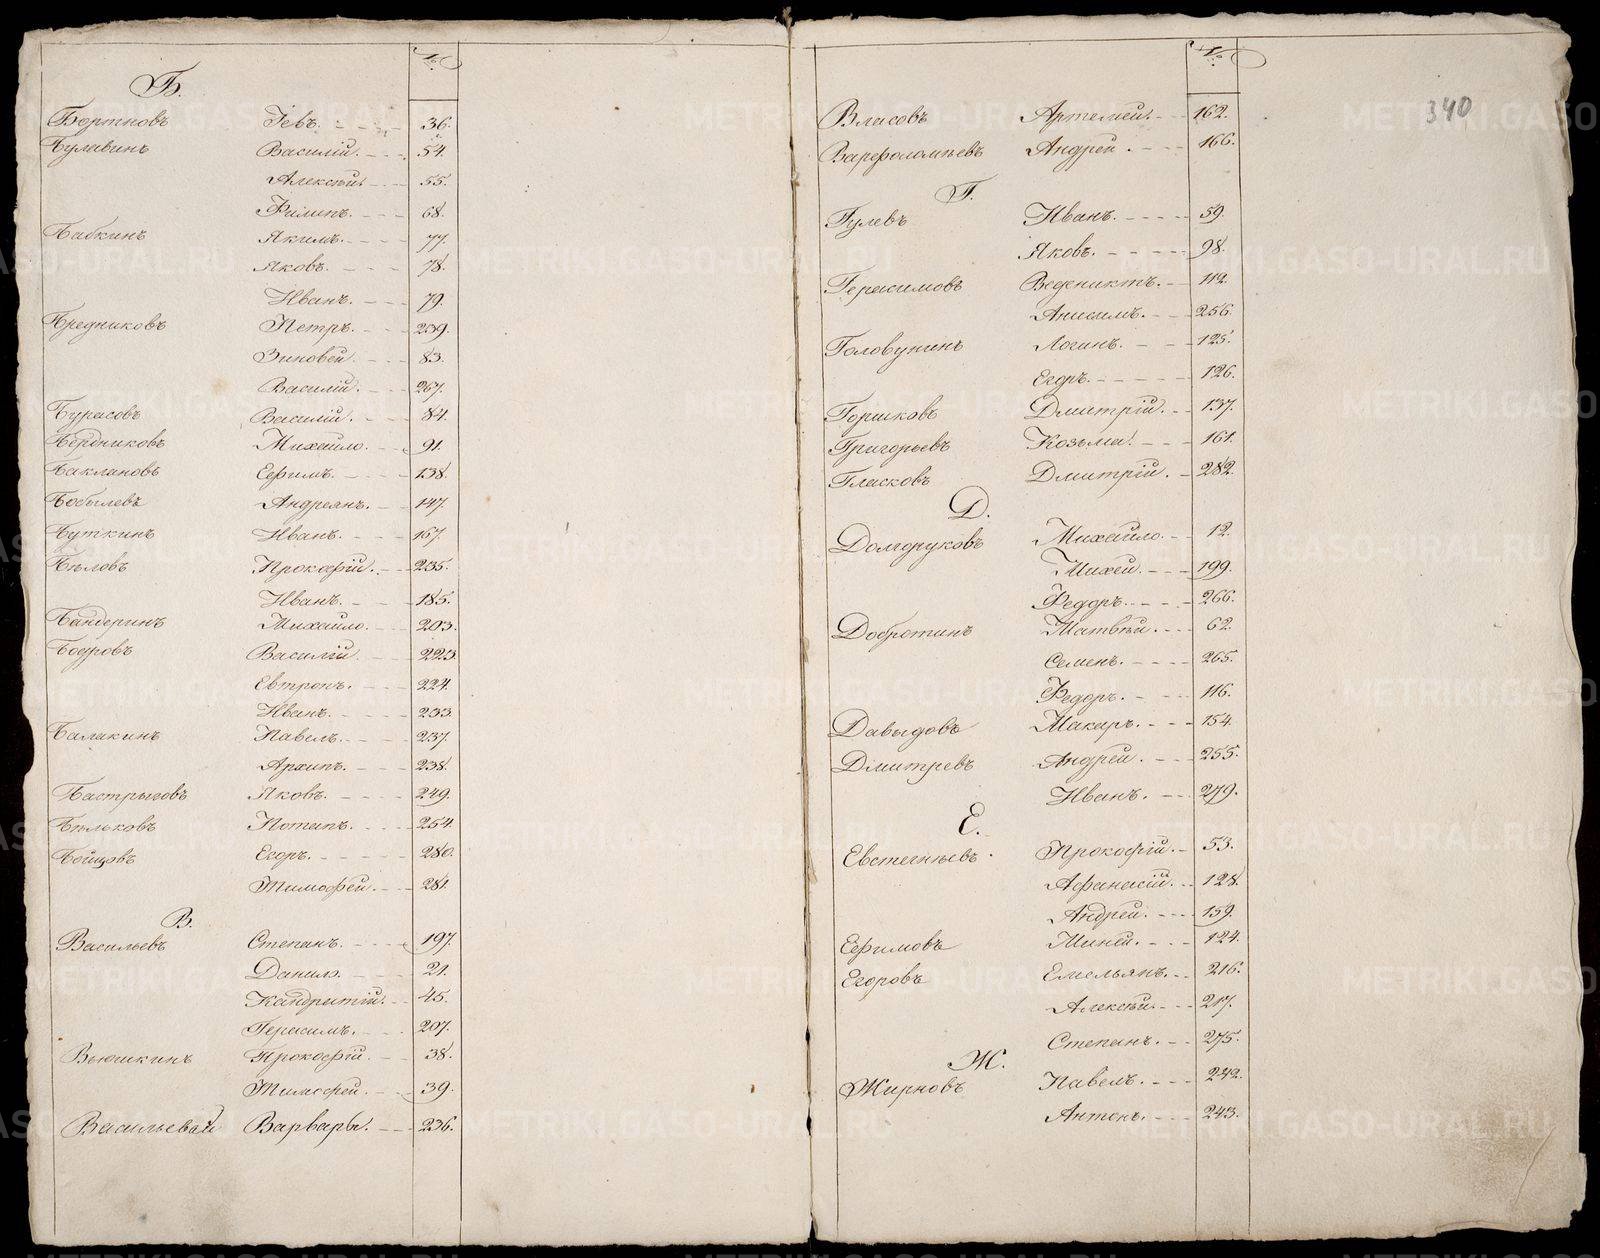 №
Б.
Бортновъ Іевъ. 36.
Булавинъ Василій. 54.
Алексѣй. 55.
Филипъ. 68.
Бабкинъ Якимъ. 77.
Яковъ. 78.
Иванъ. 79.
Бредниковъ Петръ. 239.
Зиновей. 83.
Василій. 267.
Бурасовъ Василій. 84.
Бердниковъ Михайло. 91.
Баклановъ Ефимъ. 138.
Бобылевъ Андреянъ. 147.
Буткинъ Иванъ. 167.
Бѣловъ Прокофій. 235.
Иванъ. 185.
Бандеринъ Михайло. 203.
Бодровъ Василій. 223.
Евтропъ. 224.
Иванъ. 233.
Балакинъ Павелъ. 237.
Архипъ. 238.
Бастрыговъ Яковъ. 249.
Бѣльковъ Потапъ. 254.
Бойцовъ Егоръ. 280.
Тимофей. 281.
В.
Васильевъ Степанъ. 197.
Данило. 21.
Кандратій. 45.
Герасимъ. 207.
Вьюшкинъ Прокофій. 38.
Тимофей. 39.
Васильевай Варвары. 236.
№
340
Власовъ Артемей. 162.
Варфоломѣевъ Андрей. 166.
Г.
Гулевъ Иванъ. 59.
Яковъ. 98.
Герасимовъ Веденихтъ. 112.
Анисимъ. 256.
Головунинъ Логинъ. 125.
Егоръ. 126.
Горшковъ Дмитрій. 137.
Григорьевъ Козьма. 161.
Гласковъ Дмитрій. 282.
Д.
Долгоруковъ Михайло. 12.
Михей. 199.
Федоръ. 266.
Добротинъ Матвѣй. 62.
Семенъ. 265.
Федоръ. 116.
Давыдовъ Макаръ. 154.
Дмитревъ Андрей. 255.
Иванъ. 279.
Е.
Евстегнѣевъ Прокофій. 53.
Афанасій. 128.
Андрей. 159.
Ефимовъ Миней. 124.
Егоровъ Емельянъ. 216.
Алексѣй. 217.
Степанъ. 275.
Ж.
Жирновъ Павелъ. 242.
Антонъ. 243.